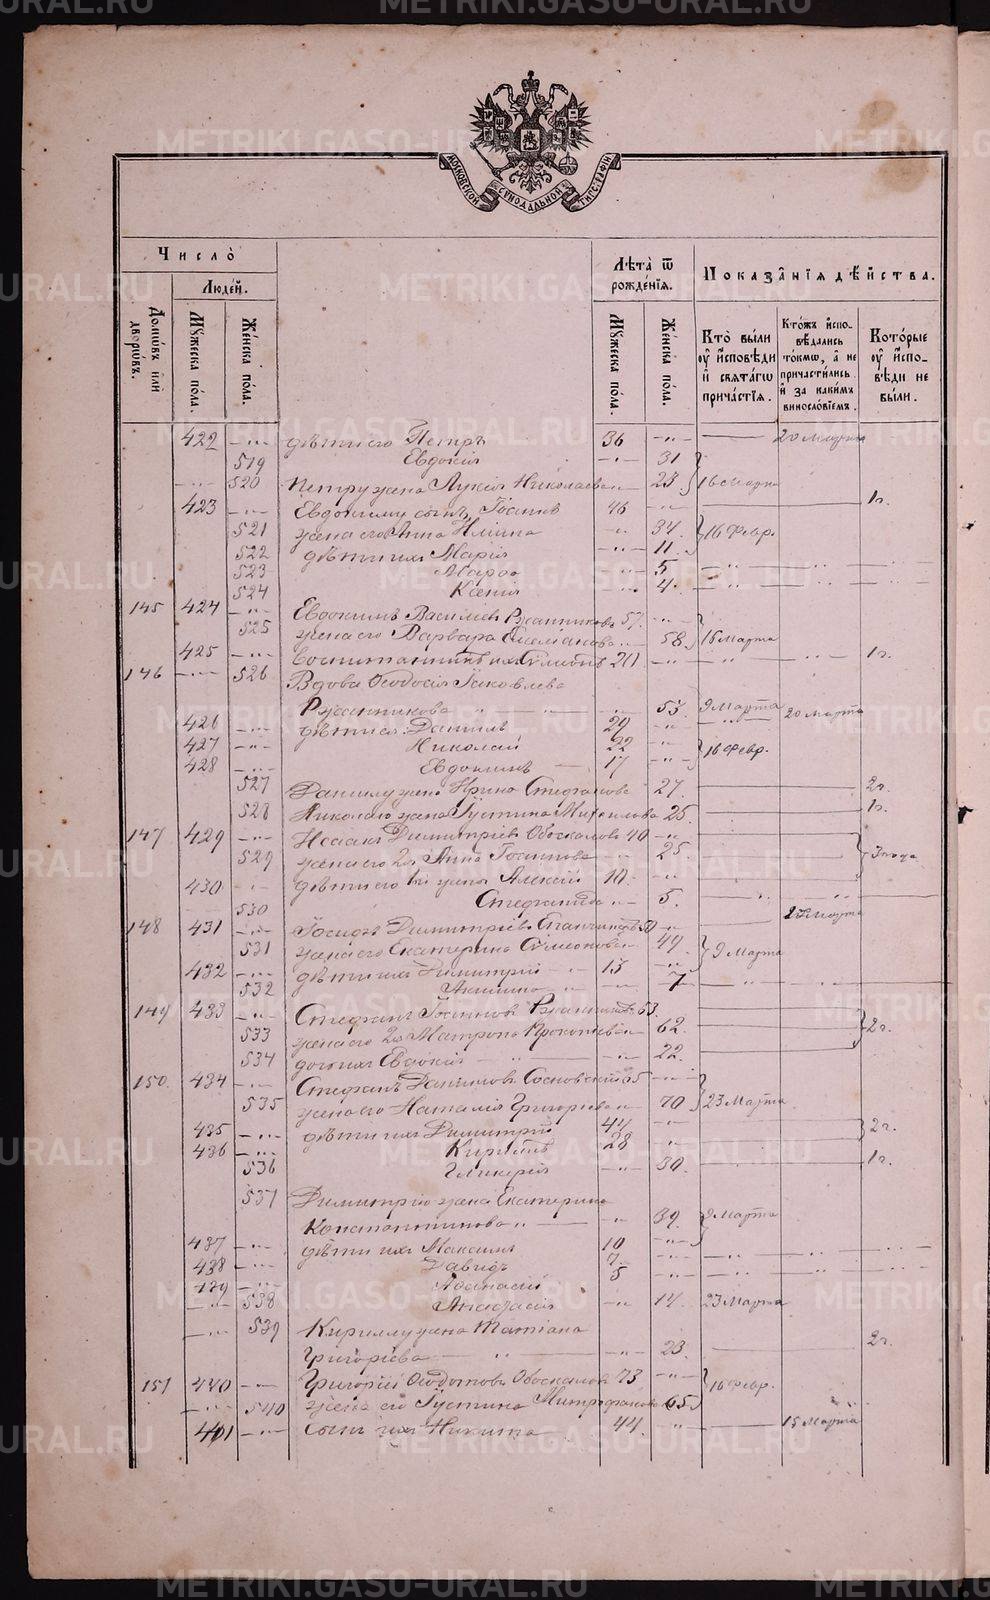 МОСКОВСКОЙ СѴНОДАЛЬНОЙ ТИПОГРАФІИ
Число̀
Люде́й.
Лѣта̀ ѿ рожде́нїѧ.
Показа̂нїѧ дѣ́йства.
Домѡ́въ и҆лѝ дворѡ́въ.
Мꙋ́жеска по́ла.
Же́нска по́ла.
Мꙋ́жеска по́ла.
Же́нска по́ла.
Кто̀ бы́ли ᲂу҆ и҆сповѣди и҆ свѧта́гѡ прича́стїѧ.
Кто́жъ и҆сповѣдались то́кмѡ, а҆ не причасти́лись. и҆ за каки́мъ винослові́емъ.
Кото́рые ᲂу҆ и҆сповѣди не бы́ли.
422 -"- дѣти его Петръ 36 -"- 20 Марта
519 Евдокія -"- 31
-"- 520 Петру жена Лукія Николаева 23 16 Марта
423 -"- Евдокиму сынъ Іоаннъ 46 -"- 1 г.
521 жена его Анна Ильина " 34 16 Февр.
522 дѣти ихъ Марія -"- 11.
523 -"- 5
524 Ксенія -"- 4
145 424 -"- Евдокимъ Василіевъ 57. -"-
525 жена его Варвара " 58 15 Марта
425 -"- воспитанникъ ихъ 20 -"- 1 г.
146 -"- 526 Вдова Ѳеодосія Іаковлева
Рѣзанникова " -"- 55 9 Марта
426 -"- дѣти ея: Даніилъ 29 -"- 20 Марта
427 -"- Николай 22 -"- 16 Февр.
428 -"- Евдокимъ 17 -"-
527 Даніилу жена Ирина Стефанова 27 2 г.
528 Николаю жена Іустина 25 1 г.
147 429 -"- Исаакъ Димитріевъ 40 -"-
529 жена его 2я Анна Іоаннова " 25 3 года
430 -"- дѣти его 1й жены Алексій 10 -"-
530 Стефанида " 5
148 431 -"- Іосифъ Димитріевъ 50 -"- Марта
531 жена его Екатерина Сѵмеонова 49 9 Марта
432 -"- дѣти ихъ Димитрій 15 -"-
532 Акилина " 7
149 433 -"- Стефанъ Іоанновъ 63.
533 жена его 2я Матрона Прокопіева 62 2 г.
534 дочь ихъ Евдокія " 22
150. 434 -"- Стефанъ Даниловъ Сосновскій -"-
535 жена его Наталія Григорьева 70 23 Марта
435 -"- дѣти ихъ Димитрій 44 -"- 2 г.
436 -"- Кириллъ 28 "
536 Гликерія -"- 30 1 г.
537 Димитрію жена Екатерина
Константинова " " 39 9 Марта
437 -"- дѣти ихъ Максимъ 10 -"-
438 -"- Давидъ 7 -"-
439 -"- Аѳанасій 5 -"-
-"- 538 Анастасія " 14 23 Марта
-"- 539 Кириллу жена Татіана
Григорьева " -"- 23 2 г.
151 440 -"- Григорій Ѳеодотовъ 73 -"- 16 Февр.
540 жена его Іустина Митрофанова 65
441 -"- сынъ ихъ Никита 44 " 15 Марта
METRIKI.GASO-URAL.RU